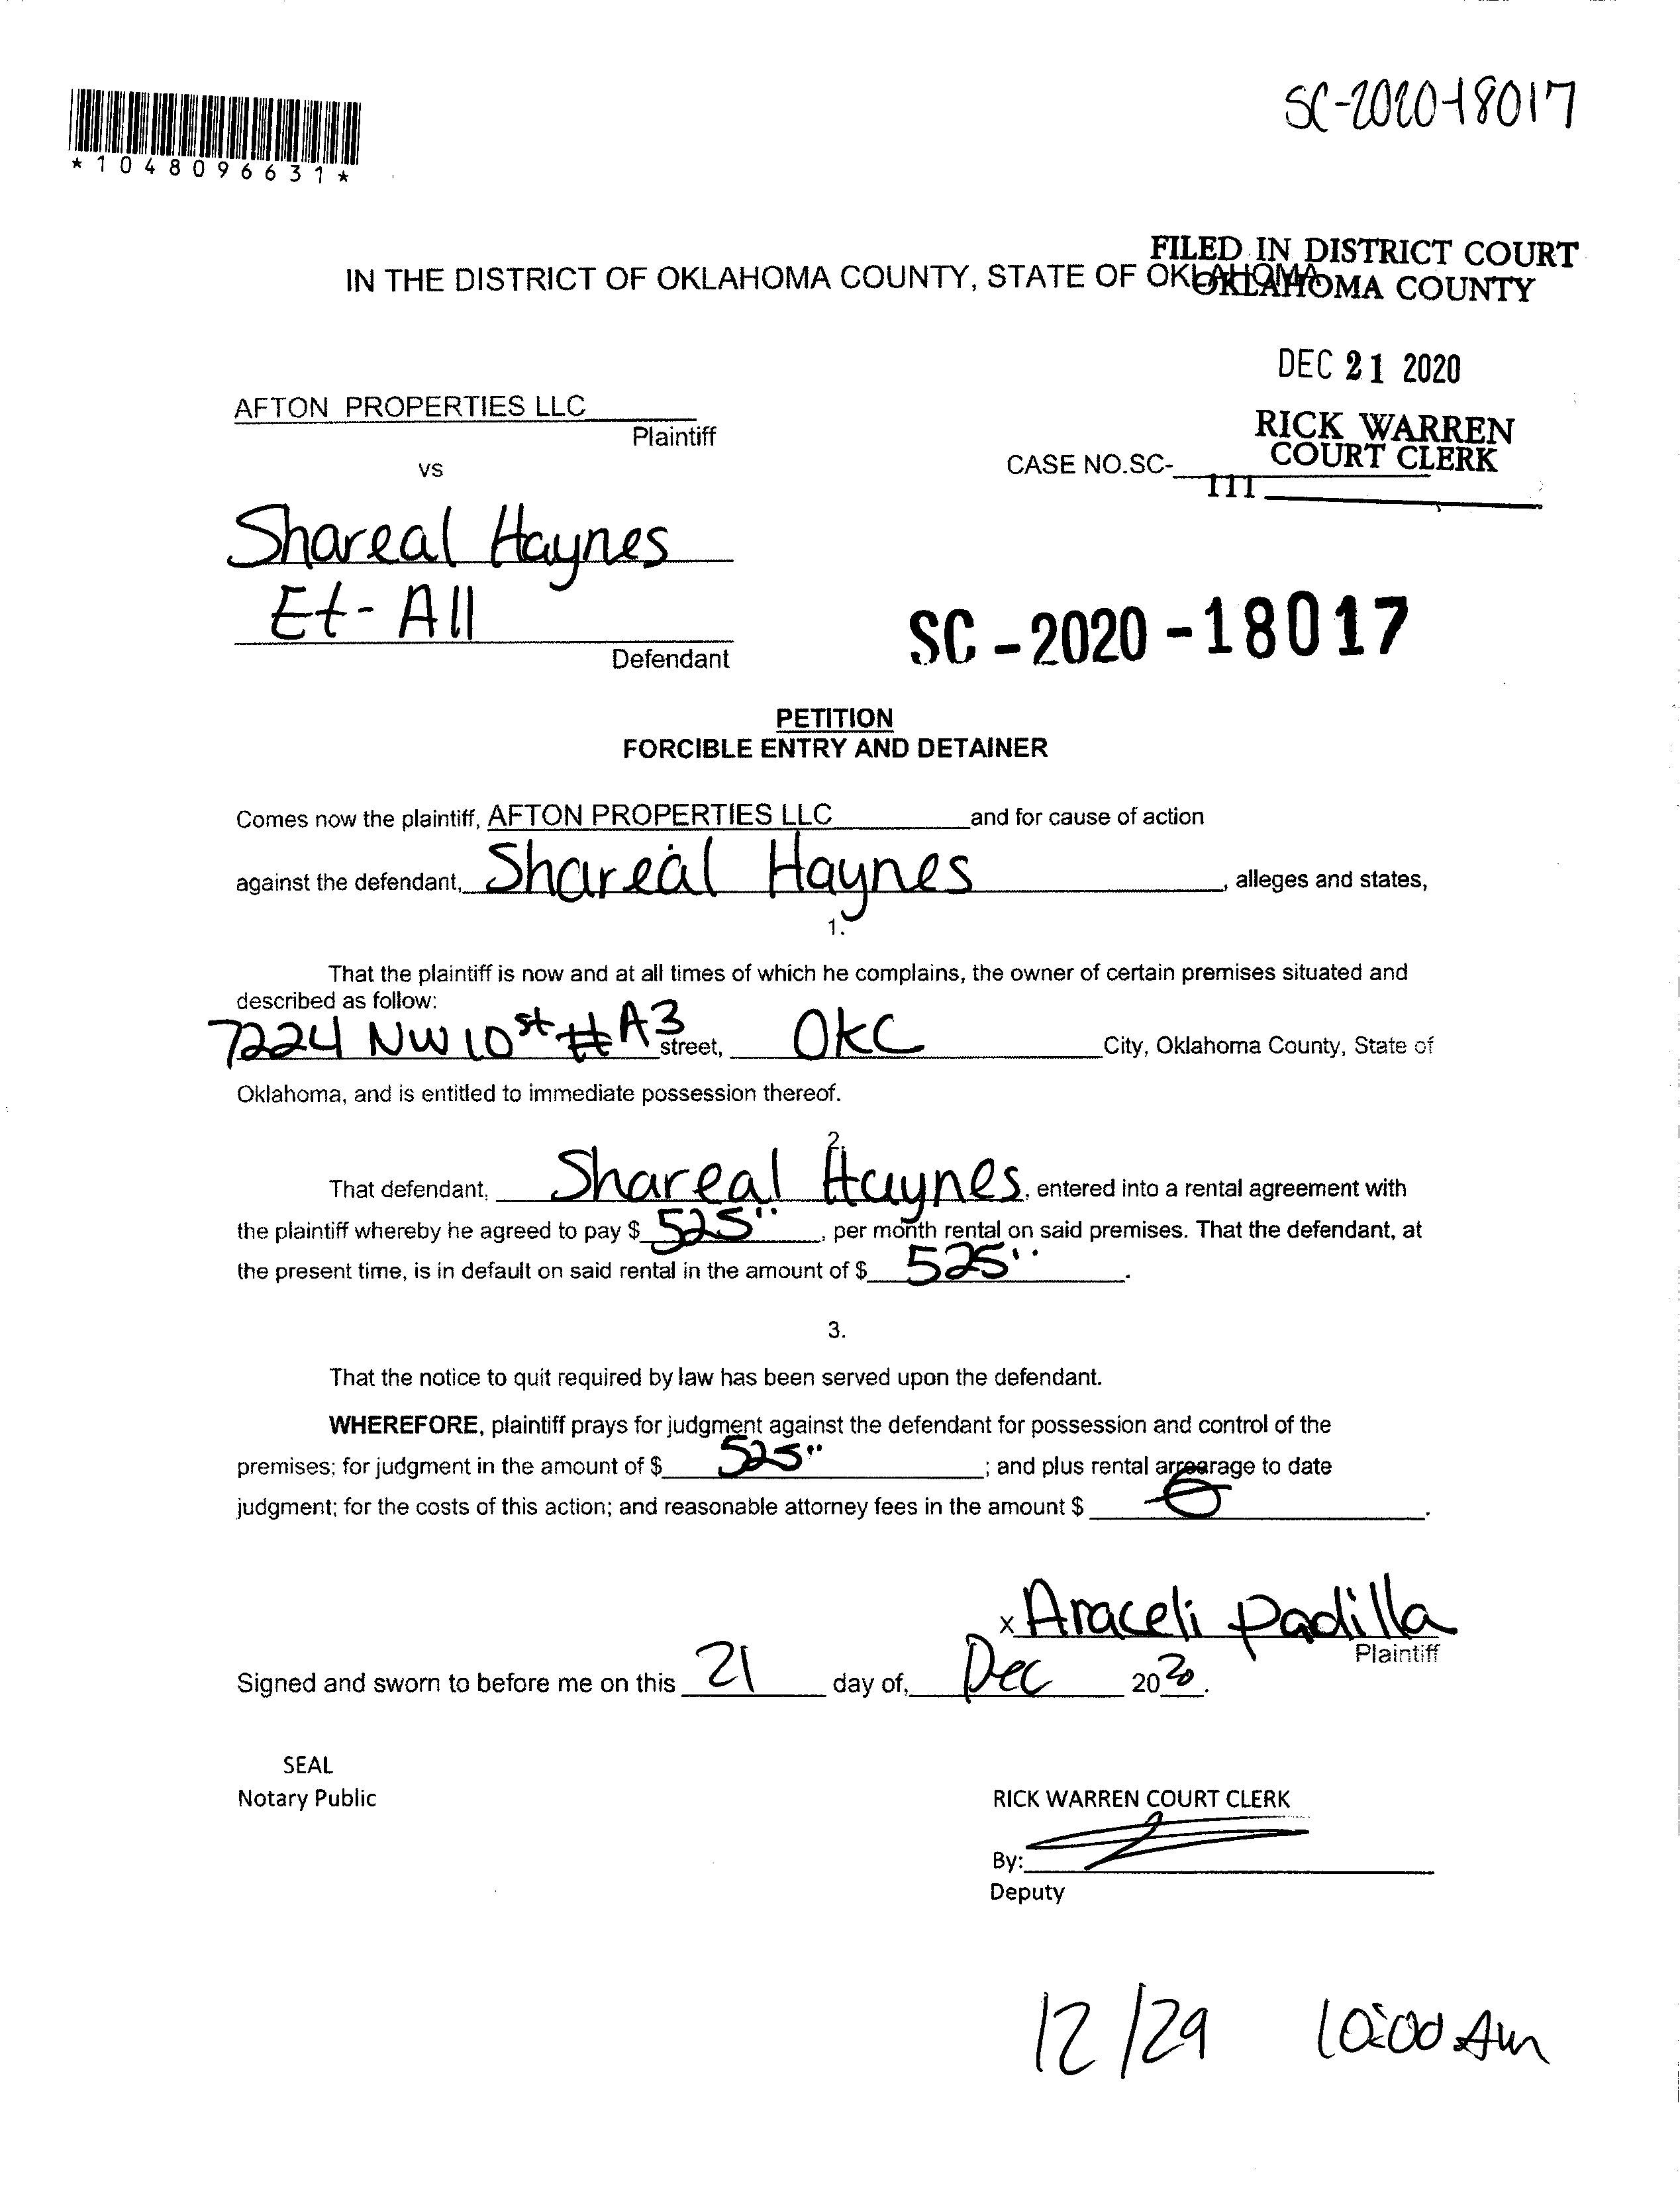 SC-2020-18017
*1048096631*
FILED IN DISTRICT COURT
OKLAHOMA COUNTY
IN THE DISTRICT OF OKLAHOMA COUNTY, STATE OF OKLAHOMA
DEC 21 2020
AFTON PROPERTIES LLC
Plaintiff
RICK WARREN
COURT CLERK
vs
CASE NO.SC-
111
Shareal Haynes
Et-All
Defendant
SC-2020-18017
PETITION
FORCIBLE ENTRY AND DETAINER
Comes now the plaintiff, AFTON PROPERTIES LLC and for cause of action
against the defendant, Shareal Haynes, alleges and states,
1.
That the plaintiff is now and at all times of which he complains, the owner of certain premises situated and
described as follow:
7224 NW 10st #A3 street, OKC City, Oklahoma County, State of
Oklahoma, and is entitled to immediate possession thereof.
2.
That defendant, Shareal Haynes, entered into a rental agreement with
the plaintiff whereby he agreed to pay $ 525", per month rental on said premises. That the defendant, at
the present time, is in default on said rental in the amount of $ 525".
3.
That the notice to quit required by law has been served upon the defendant.
WHEREFORE, plaintiff prays for judgment against the defendant for possession and control of the
premises; for judgment in the amount of $ 525"; and plus rental arrearage to date
judgment; for the costs of this action; and reasonable attorney fees in the amount $ 0.
x Araceli Padilla
Plaintiff
Signed and sworn to before me on this 21 day of, Dec 2020.
SEAL
Notary Public
RICK WARREN COURT CLERK
By:
Deputy
12/29 10:00 Am